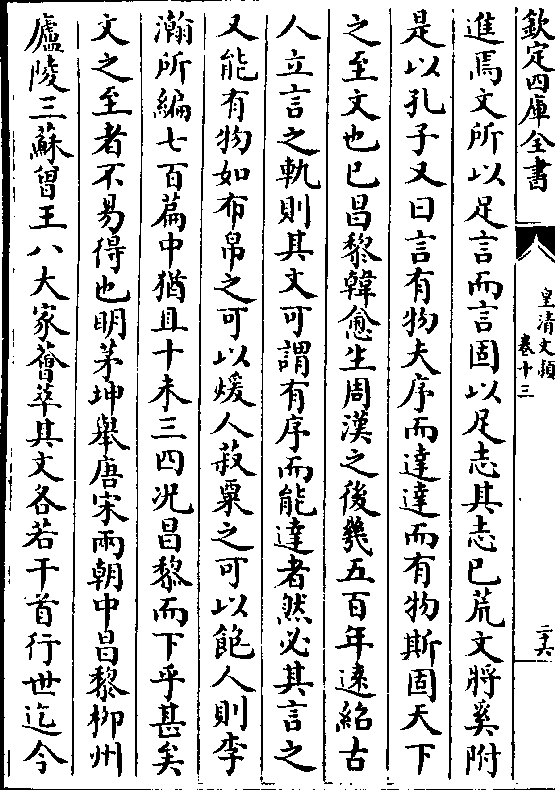 欽定四庫全書
皇清文頴
卷十三
二十六
進焉文所以足言而言固以足志其志已荒文將奚附
是以孔子又曰言有物夫序而達達而有物斯固天下
之至文也已昌黎韓愈生周漢之後幾五百年遠紹古
人立言之軌則其文可謂有序而能達者然必其言之
又能有物如布帛之可以煖人菽粟之可以飽人則李
瀚所編七百篇中猶且十未三四况昌黎而下乎甚矣
文之至者不易得也明茅坤舉唐宋兩朝中昌黎栁州
廬陵三蘇曾王八大家薈萃其文各若干首行世迄今